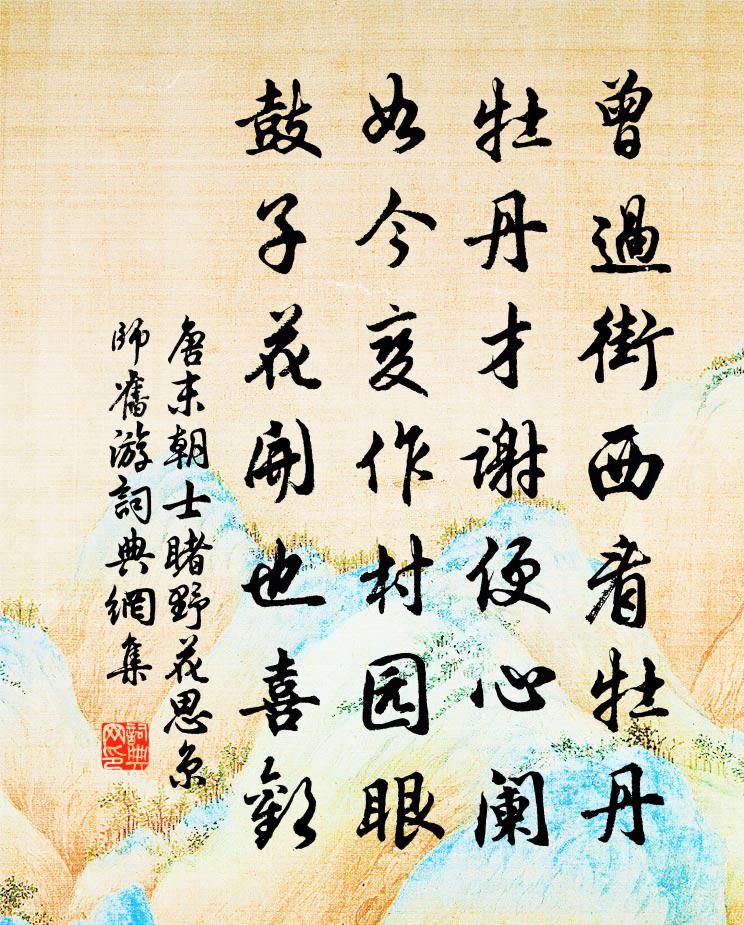 曾過街西看牡丹
牡丹才謝便心闌
如今变作村园眼
鼓子花開也喜歡
唐末朝士睹野花思京
師舊游詞典網集
詞典網印